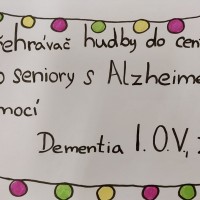 řehrávač hudby do cen
o seniory s Alzheime
mocí
Dementia I.O.V., z